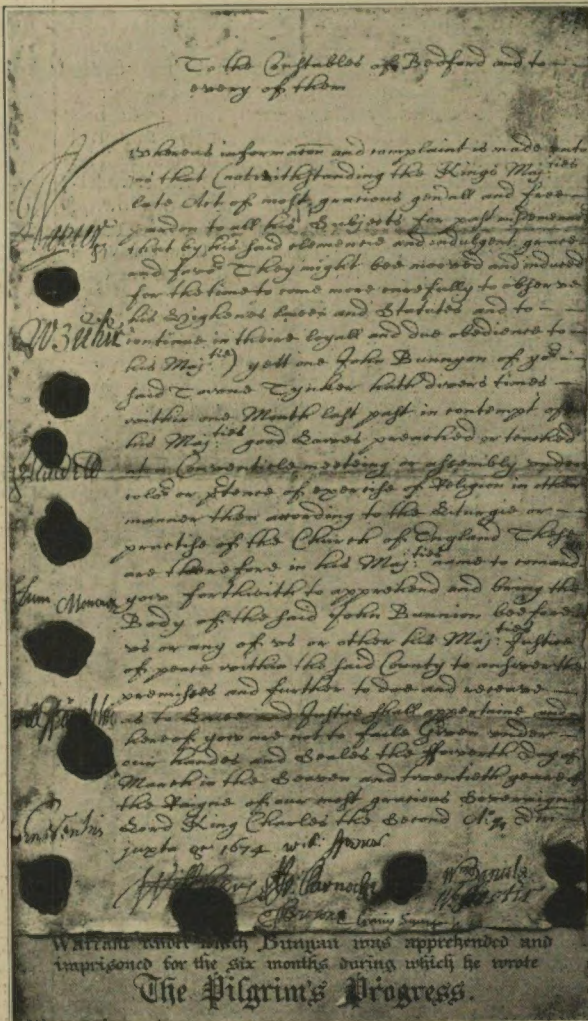 To the Constables of Bedford and to
every of them
Whereas informacon and complaint is made unto
us that (notwithstanding the Kings Maj:ties
late Act of most gracious genall and free
pardon to all his Subjects for past
that by his said clemencie and indulgent grace
and favor They might bee mooved and induced
for the time to come more carefully to observe
his Highenes lawes and Statutes and to
continue in theire loyall and due obedience to
his Maj:tie) yett one John Bunnyon of yor
said Towne Tynker hath divers times
within one Month last past in contempt of
his Maj:ties good Lawes preached or teached
at a Conventicle meeteing or assembly under
color or ptence of exercise of Religion in other
manner then according to the Liturgie or
practise of the Church of England These
are therefore in his Maj:ties name to comand
you forthwith to apprehend and bring the
Body of the said John Bunnion beefore
us or any of us or other his Maj:ties Justice
of peace within the said County to answer the
premisses and further to doe and receave
as to Lawe and Justice shall appertaine and
hereof you are not to faile Given under
our handes and Seales this ffowerth day of
March in the Seaven and twentieth yeare of
the Raigne of our most gracious Soveraigne
Lord King Charles the Second
juxta gr 1674
Warrant under which Bunyan was apprehended and
imprisoned for the six months during which he wrote
The Pilgrim's Progress.